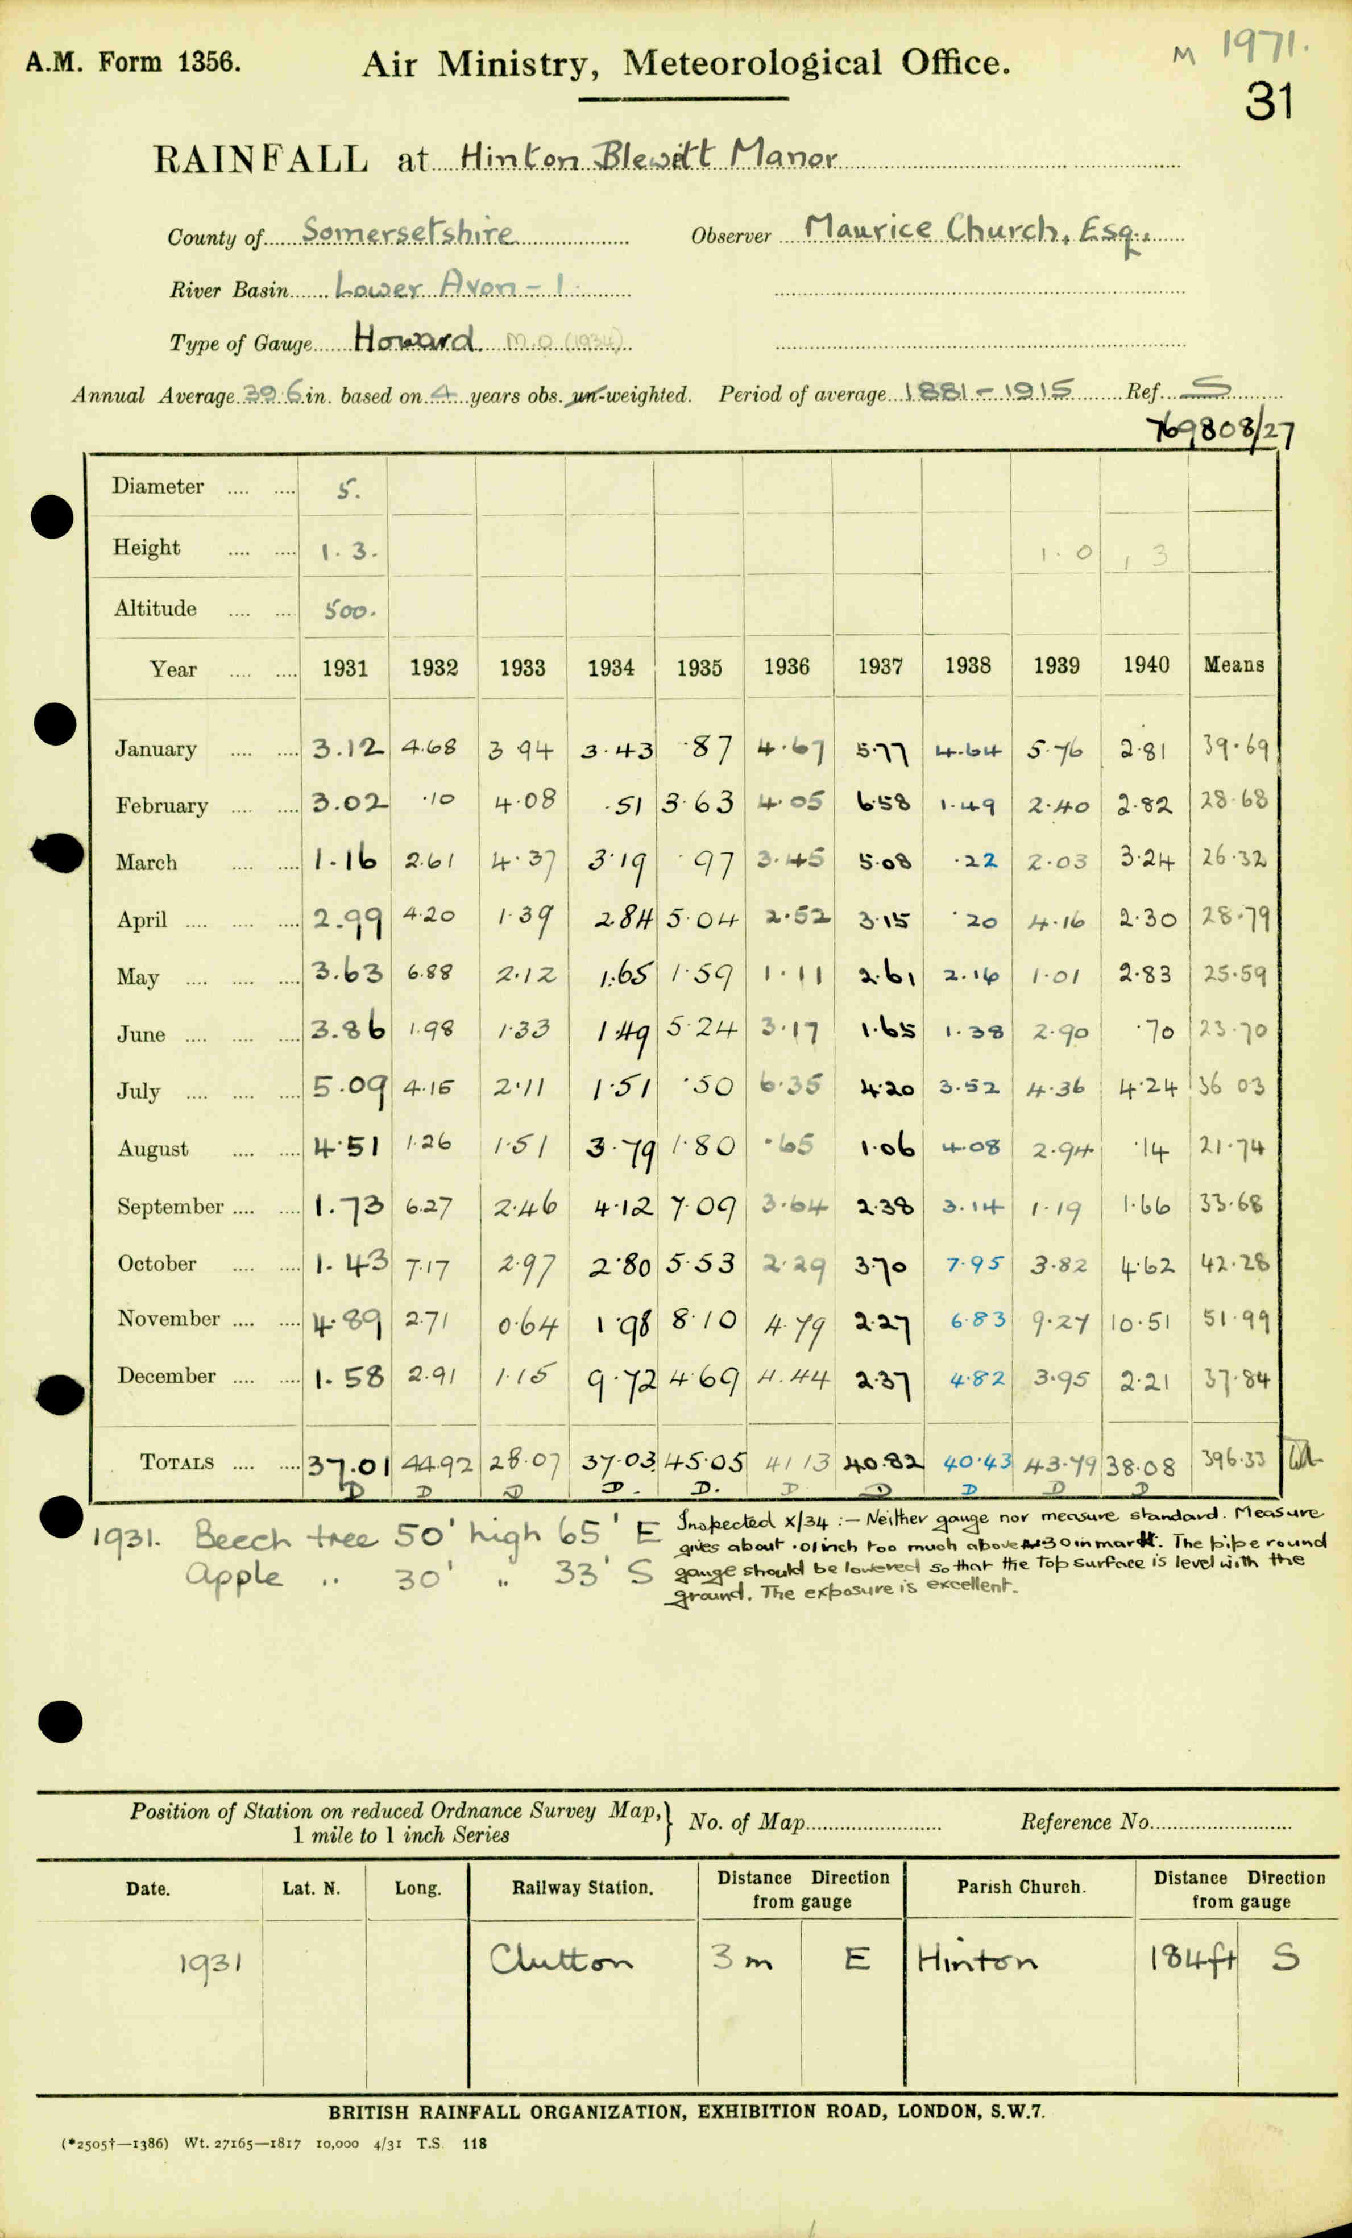 A.M. Form 1356. Air Ministry, Meteorological Office. M 1971.
31
RAINFALL at Hinton Blewitt Manor
County of Somersetshire Observer Maurice Church, Esq.,
River Basin Lower Avon - 1
Type of Gauge Howard. M.O (1934)
Annual Average 39.6 in. based on 4 years obs. un-weighted. Period of average 1881-1915 Ref. S
769808/27
Diameter .... .... 5.
Height .... .... 1.3. 1.0 1 3
Altitude .... .... 500.
Year .... .... 1931 1932 1933 1934 1935 1936 1937 1938 1939 1940 Means
January .... .... 3.12 4.68 3 94 3.43 .87 4.67 5.77 4.64 5.76 2.81 39.69
February .... .... 3.02 .10 4.08 .51 3.63 4.05 6.58 1.49 2.40 2.82 28.68
March .... .... 1.16 2.61 4.37 3.19 .97 3.45 5.08 .22 2.03 3.24 26.32
April .... .... .... 2.99 4.20 1.39 2.84 5.04 2.52 3.15 .20 4.16 2.30 28.79
May .... .... .... 3.63 6.88 2.12 1.65 1.59 1.11 2.61 2.16 1.01 2.83 25.59
June .... .... .... 3.86 1.98 1.33 1.49 5.24 3.17 1.65 1.38 2.90 .70 23.70
July .... .... .... 5.09 4.15 2.11 1.51 .50 6.35 4.20 3.52 4.36 4.24 36 03
August .... .... 4.51 1.26 1.51 3.79 1.80 .65 1.06 4.08 2.94 .14 21.74
September .... .... 1.73 6.27 2.46 4.12 7.09 3.64 2.38 3.14 1.19 1.66 33.68
October .... .... 1.43 7.17 2.97 2.80 5.53 2.29 3.70 7.95 3.82 4.62 42.28
November .... .... 4.89 2.71 0.64 1.98 8.10 4.79 2.27 6.83 9.27 10.51 51.99
December .... .... 1.58 2.91 1.15 9.72 4.69 4.44 2.37 4.82 3.95 2.21 37.84
TOTALS .... .... 37.01 44.92 28.07 37.03 45.05 41 13 40.82 40.43 43.79 38.08 396.33
D D D D. D. D D D D D
1931. Beech tree 50' high 65' E
Apple .. 30' .. 33' S
Inspected X/34 :- Neither gauge nor measure standard. Measure
gives about .01 inch too much above .30 in mark. The pipe round
gauge should be lowered so that the top surface is level with the
ground. The exposure is excellent.
Position of Station on reduced Ordnance Survey Map,} No. of Map Reference No.
1 mile to 1 inch Series
Date. Lat. N. Long. Railway Station. Distance Direction from gauge Parish Church. Distance Direction from gauge
1931 Clutton 3 m E Hinton 184ft S
BRITISH RAINFALL ORGANIZATION, EXHIBITION ROAD, LONDON, S.W.7.
(*2505†—1386) Wt. 27165—1817 10,000 4/31 T.S. 118